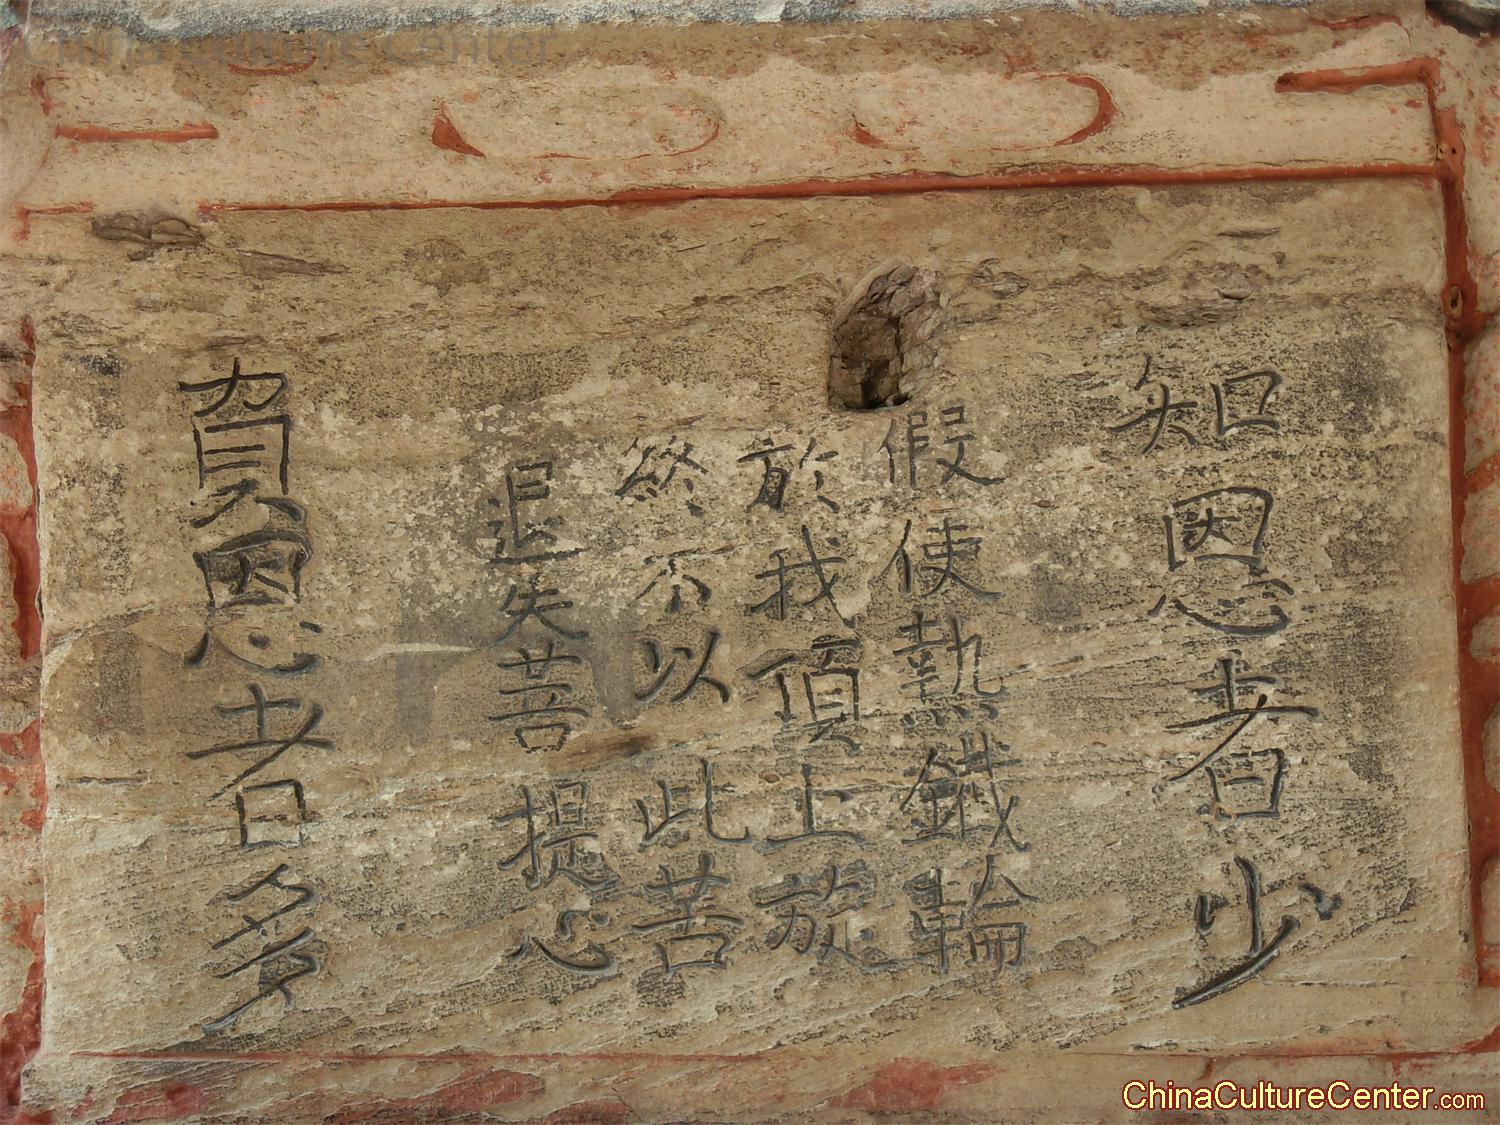 China Culture Center
知恩者少
假使熱鐵輪
於我頂上旋
終不以此苦
退失菩提心
負恩者多
ChinaCultureCenter.com